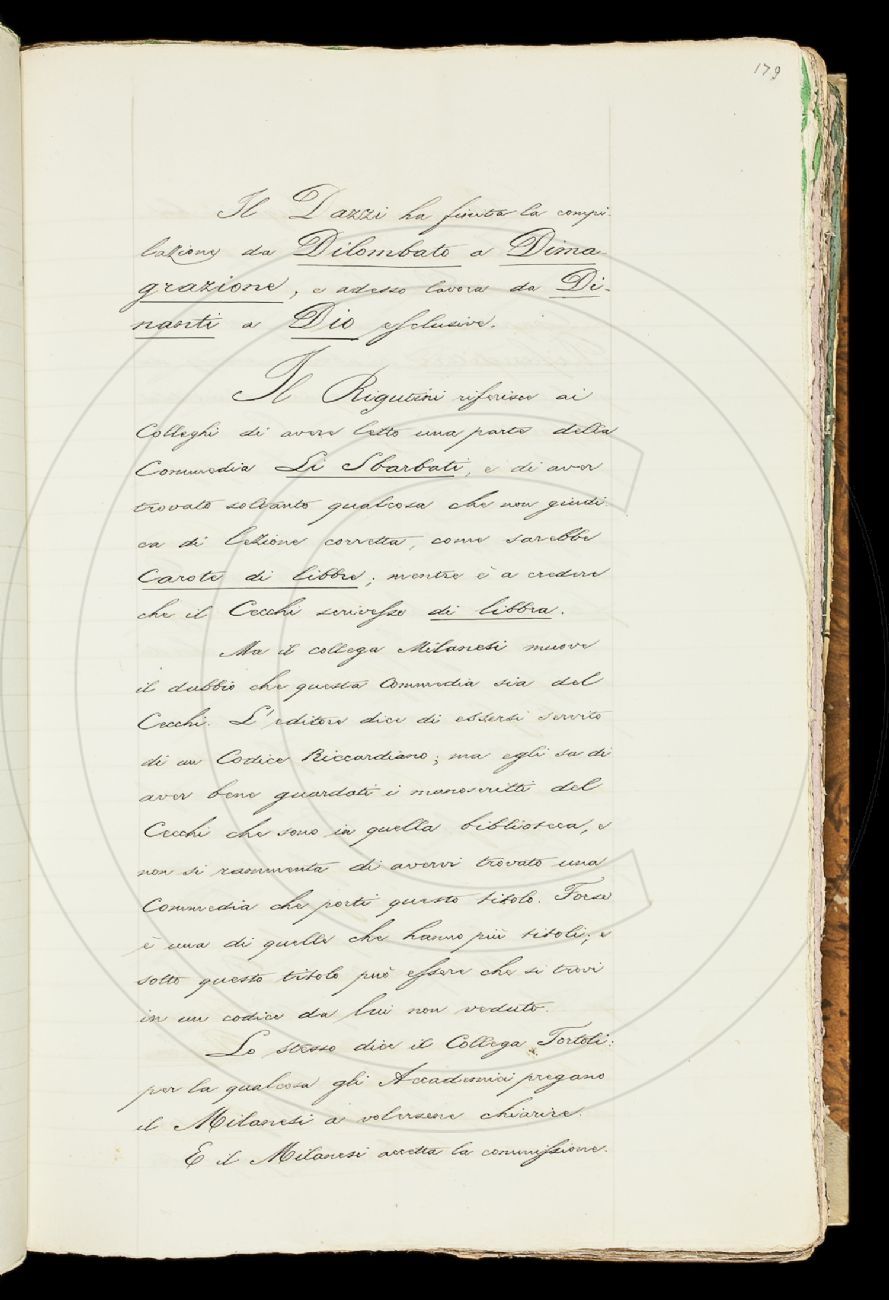 179
Il Dazzi ha finito la compi-
lazione da Dilombato a Dima-
grazione, e adesso lavora da Di-
nanti a Dio esclusive.
Il Rigutini riferisce ai
Colleghi di avere letto una parte della
Commedia Li Sbarbati, e di aver
trovato soltanto qualcosa che non giudi-
ca di lezione corretta, come sarebbe
Carote di libbre; mentre è a credere
che il Cecchi scrivesse di libbra.
Ma il collega Milanesi muove
il dubbio che questa Commedia sia del
Cecchi. L'editore dice di essersi servito
di un Codice Riccardiano; ma egli sa di
aver bene guardati i manoscritti del
Cecchi che sono in quella biblioteca, e
non si rammenta di avervi trovato una
Commedia che porti questo titolo. Forse
è una di quelle che hanno più titoli; e
sotto questo titolo può essere che si trovi
in un codice da lui non veduto.
Lo stesso dice il Collega Tortoli:
per la qualcosa gli Accademici pregano
il Milanesi a volersene chiarire.
E il Milanesi accetta la commissione.